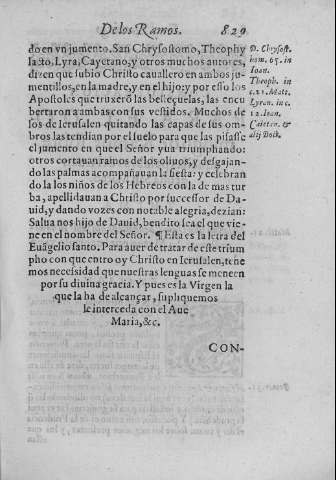 De los Ramos. 829
do en vn jumento. San Chrysostomo, Theophy
lacto, Lyra, Cayetano, y otros muchos autores,
dizen que subio Christo cauallero en ambos ju-
mentillos, en la madre, y en el hijo: y por esso los
Apostoles que truxerõ las besteçuelas, las encu
bertaron a ambas con sus vestidos. Muchos de
los de Ierusalen quitando las capas de sus om-
bros las tendian por el suelo para que las pisasse
el jumento en que el Señor yua triumphando:
otros cortauan ramos de los oliuos, y desgajan-
do las palmas acompañauan la fiesta: y celebran
do la los niños de los Hebreos con la de mas tur
ba, apellidauan a Christo por successor de Da-
uid, y dando vozes con notable alegria, dezian:
Salua nos hijo de Dauid, bendito sea el que vie-
ne en el nombre del Señor. ¶ Esta es la letra del
Euãgelio santo. Para auer de tratar de este trium
pho con que entro oy Christo en Ierusalen, tene
mos necessidad que nuestras lenguas se meneen
por su diuina gracia. Y pues es la Virgen la
que la ha de alcançar, supliquemos
le interceda con el Aue
Maria, &c.
CON-
D. Chrysost.
hom. 65. in
Ioan.
Theoph. in
c. 21. Matt.
Lyran. in c.
12. Ioan.
Caietan. &
alij Doct.